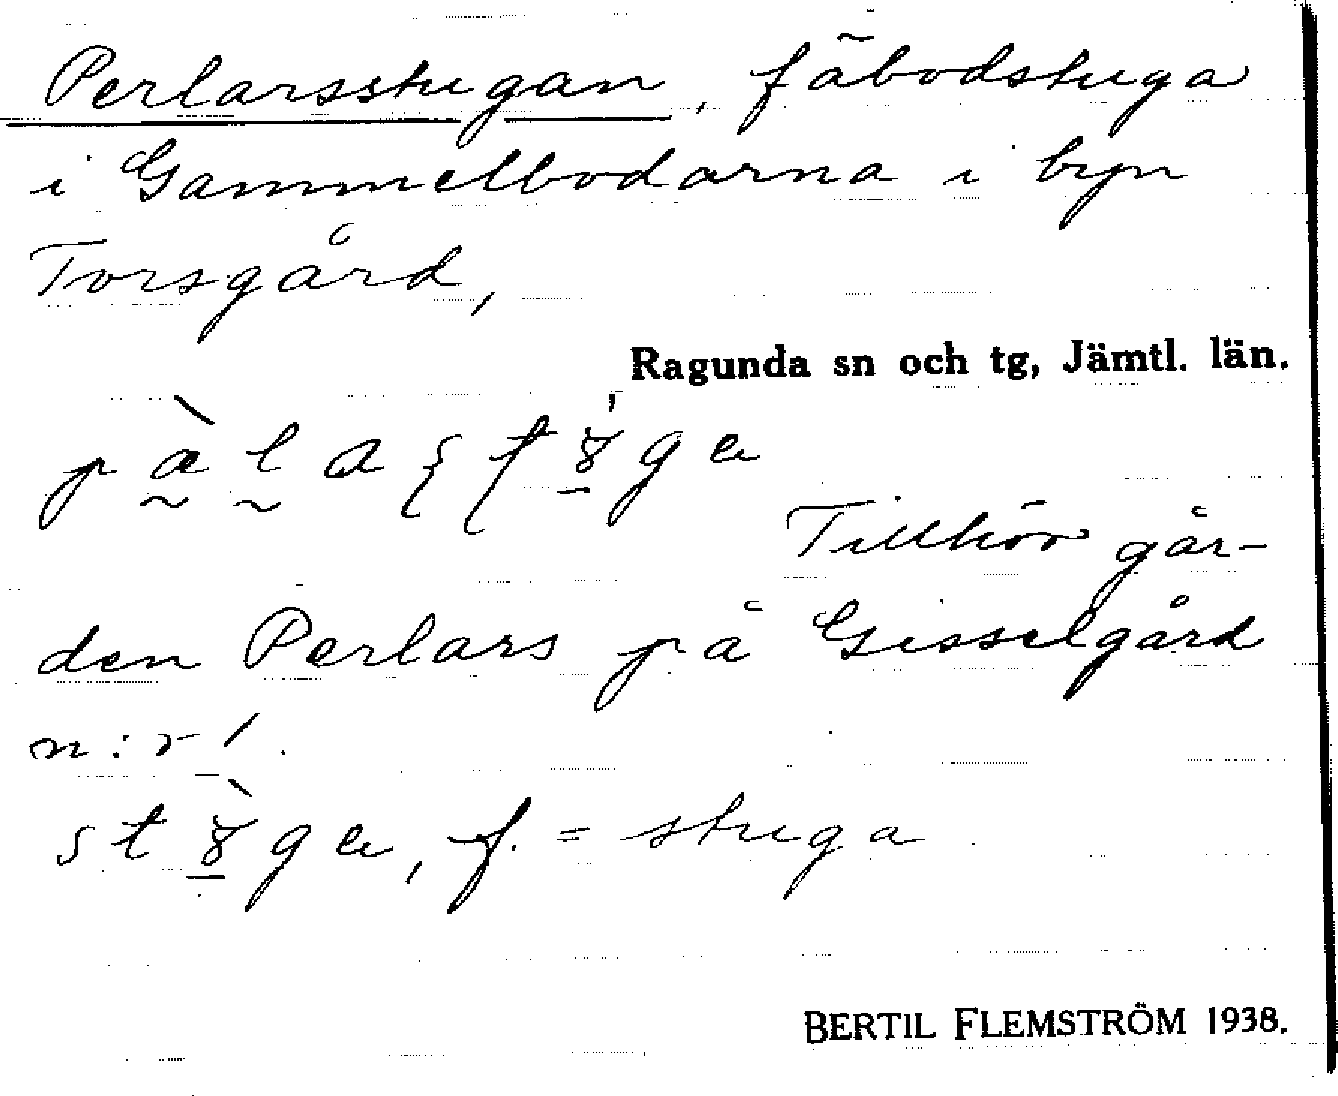 Perlarsstugan, fäbodstuga
i Gammelbodarna i byn
Torsgård,
Ragunda sn och tg, Jämtl. län.
Tillhör går-
den Perlars på Gisselgård
n:r 1.
f. = stuga
BERTIL FLEMSTRÖM 1938.